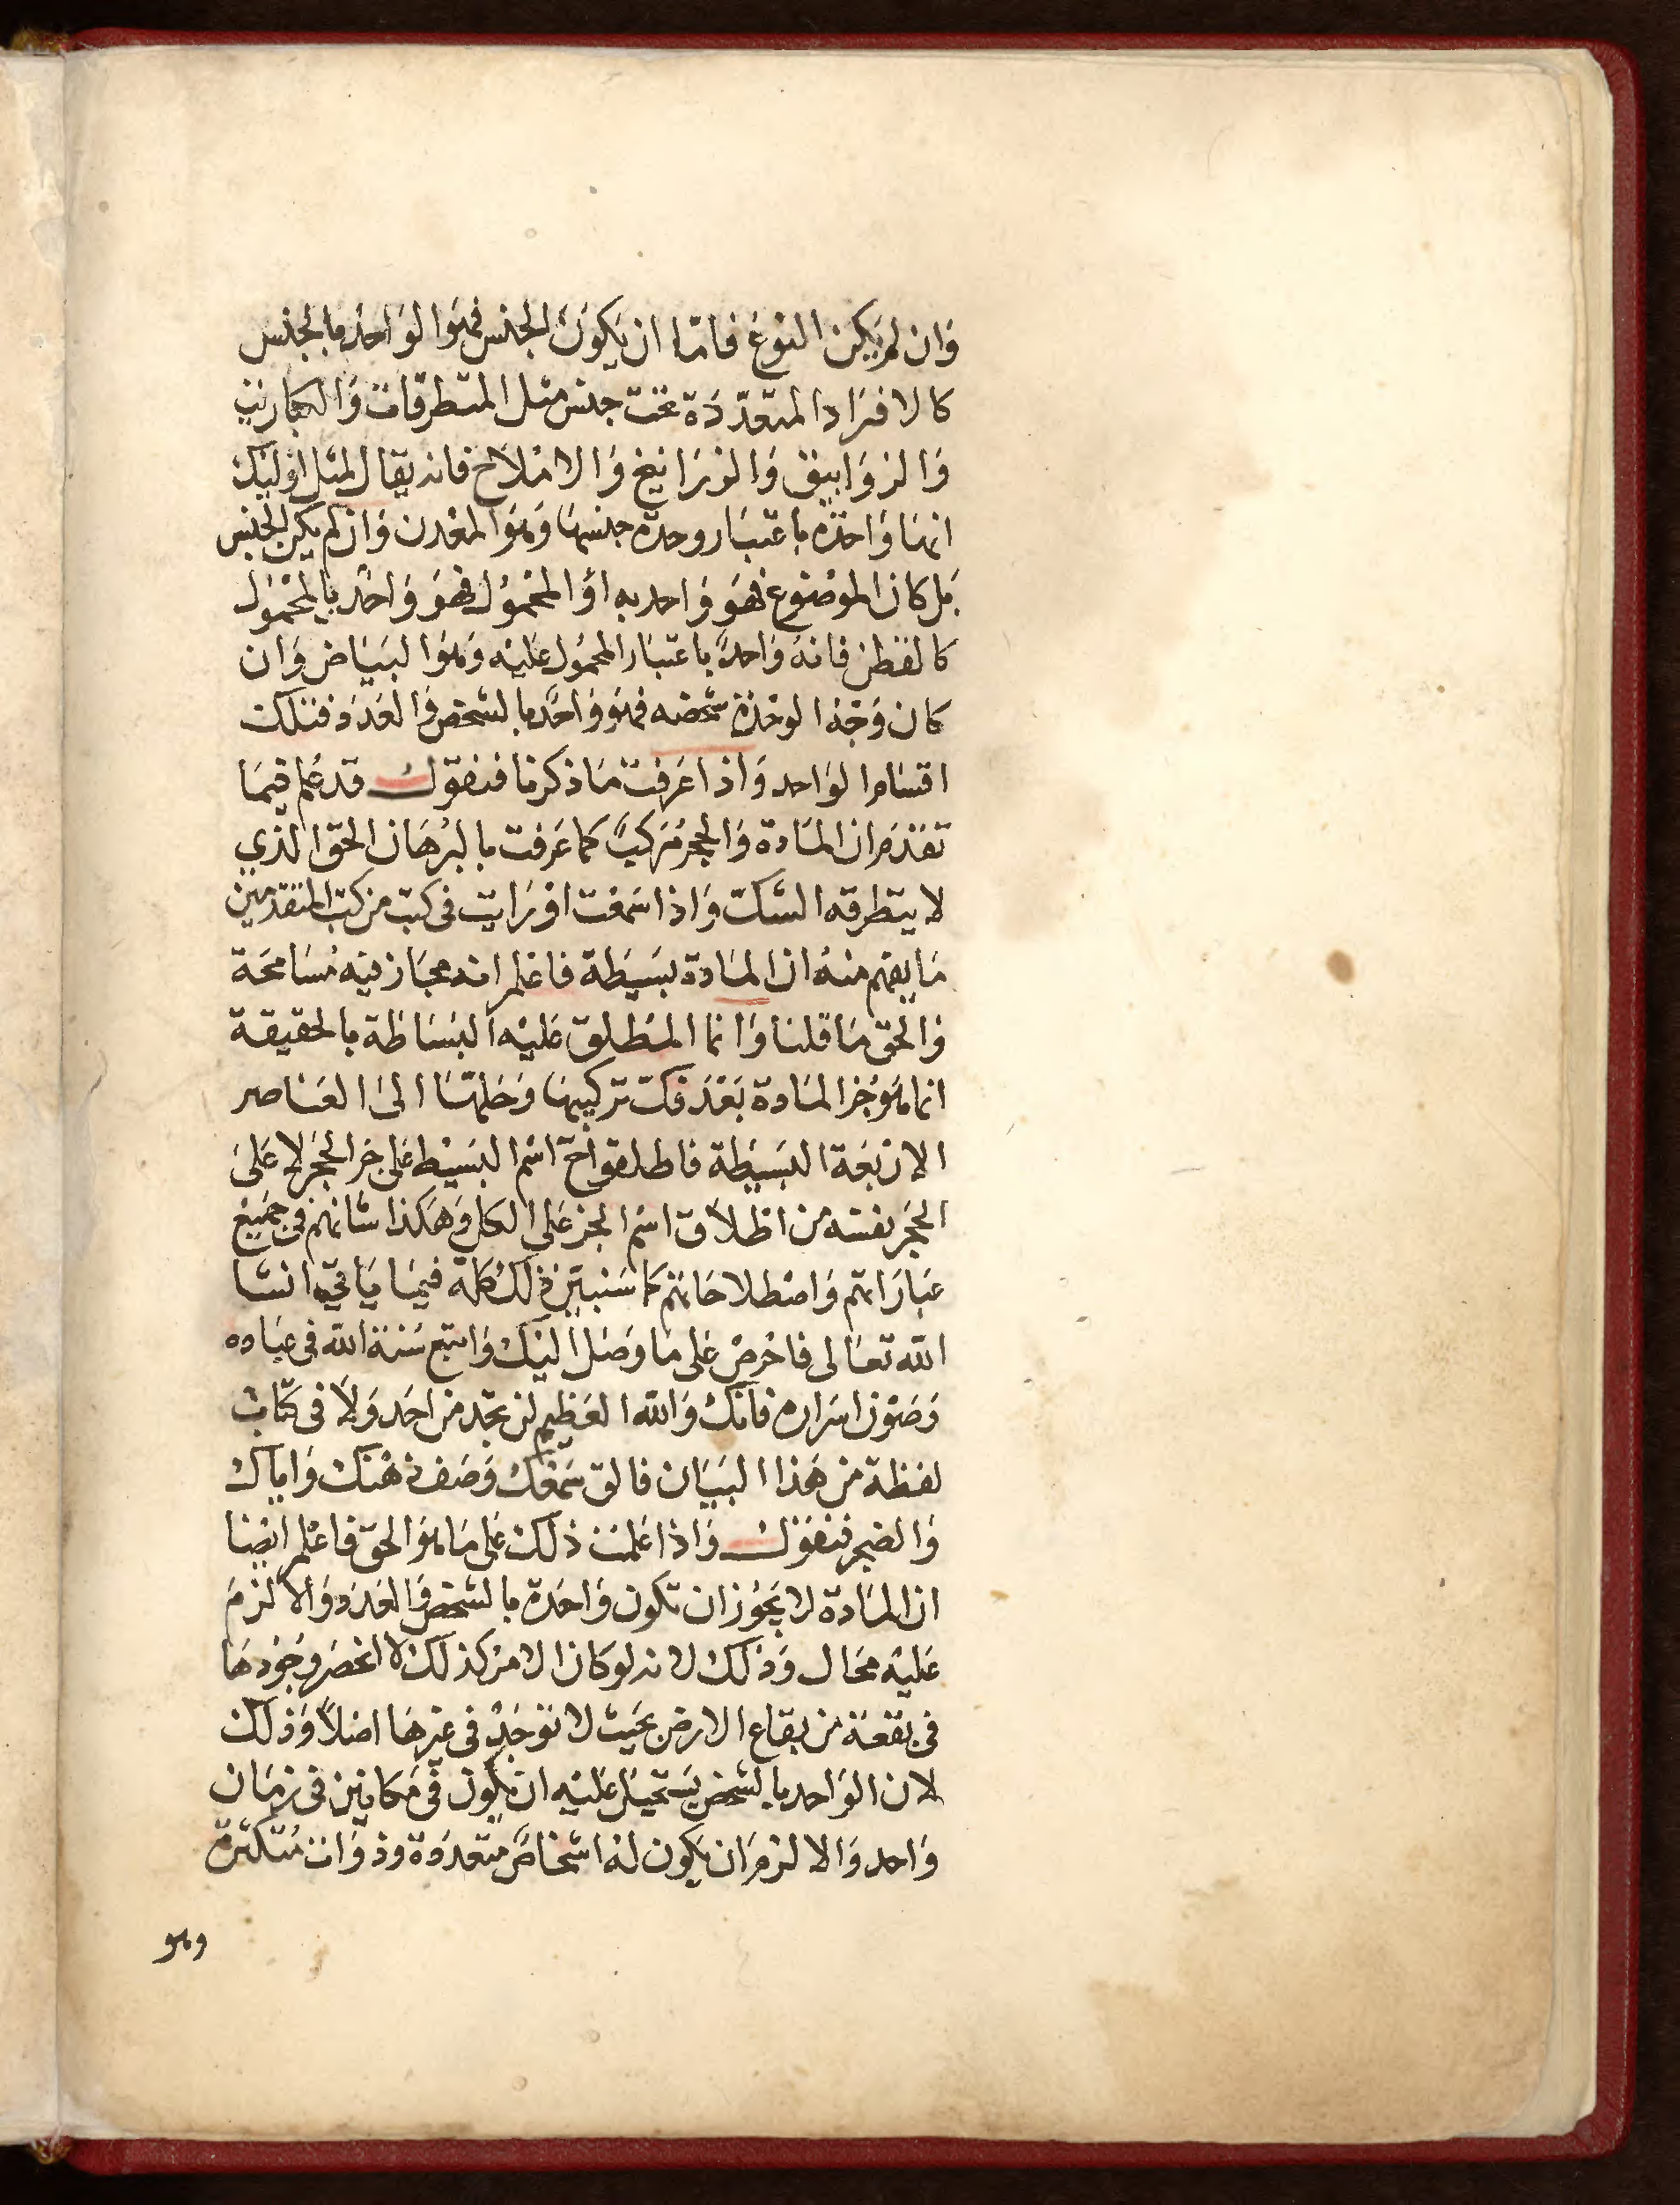 وَان لم يكن النوع فامّا ان يكون الجنس فهو الوَاحد بالجنس
كالافرَاد المتعدّدَة تحت جنس مثل المتطرقات وَالكباريت
وَالزوَابيق وَالزرَانيخ وَالاملاح فانه يقال لمثل اولئك
انهَا وَاحدَة باعتبَار وحدة جنسهَا وَهوَ المعْدن وَان لم يكن الجنس
بل كان الموضوع فهوَ وَاحد به اوْ المحمُول فهوَ وَاحد بالمحمُول
كالقطن فانه وَاحدٌ باعتبَار المحمُول عليْه وَهوَ البيَاض وَان
كان وَجه الوحْدَة شخصَه فهوَ وَاحدٌ بالشخص وَالعَدَد فتلك
اقسَام الوَاحد وَاذا عَرفت مَا ذكرنا فنقول قد عُلم فيمَا
تقدمَ ان المَادة وَالحجر مُركبٌ كما عَرفت بالبُرهَان الحق الذي
لا يتطرقه الشك وَاذا سَمعْت اوْ رَايت فى كتب من كتب المتقدمين
مَا يفهم منهُ ان المَادة بسَيطة فاعْلم انه مجَاز فيه مُسَامحَة
وَالحق مَا قلنا وَانما المطلق عَليْه البسَاطة بالحقيقة
انما هوَ جُز المَادة بَعْدَ فكّ تركيبهَا وَحَلهَا الى العَناصر
الارْبَعَة البسَيطة فاطلقوا ح اسْم البسَيْط عَلى جز الحجَر لا عَلى
الحجَر نفسه من اطلاق اسْم الجز عَلى الكل وَهَكذا شانهم فى جميْع
عبَارَاتهم وَاصْطلاحَاتهم كما سَنبيّن ذلك كله فيمَا يَاتي ان شا
الله تعَالى فاحْرصْ عَلى مَا وَصَل اليْكَ وَاتبع سُنة الله فى عبَاده
وَصَوْن اسْرَاره فانكَ وَالله العَظيم لن تجد من احَد وَلا فى كتاب
لفظة من هَذا البيَان فالق سَمْعَك وَصَف ذهْنك وَايّاك
وَالضجر فنقول وَاذا عَلمت ذلك عَلى مَا هوَ الحق فاعْلم ايضا
ان المَادة لا يَجُوز ان تكون وَاحدَة بالشخص وَالعَدَد وَالا لزمَ
عَليْه محَال وَذلك لانه لو كان الامر كذلك لانحصَر وجُودهَا
فى بقعَة من بقاع الارض بحَيث لا توجَد فى غيرهَا اصلاً وَذلك
لان الوَاحد بالشخص يَستحيل عَليْه ان يكون فى مَكانين فى زمَان
وَاحد وَالا لزم ان يَكون له اشخاصٌ متعدّدة وذوَات مُتكثرة
وهو